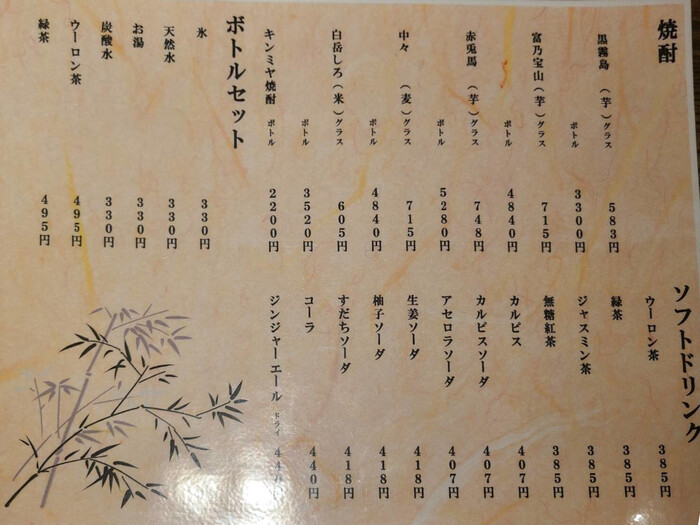 焼酎
黒霧島 (芋) グラス 583円
ボトル 3300円
富乃宝山 (芋) グラス 715円
ボトル 4840円
赤兎馬 (芋) グラス 748円
ボトル 5280円
中々 (麦) グラス 715円
ボトル 4840円
白岳しろ (米) グラス 605円
ボトル 3520円
キンミヤ焼酎 ボトル 2200円
ボトルセット
氷 330円
天然水 330円
お湯 330円
炭酸水 330円
ウーロン茶 495円
緑茶 495円
ソフトドリンク
ウーロン茶 385円
緑茶 385円
ジャスミン茶 385円
無糖紅茶 385円
カルピス 407円
カルピスソーダ 407円
アセロラソーダ 407円
生姜ソーダ 418円
柚子ソーダ 418円
すだちソーダ 418円
コーラ 440円
ジンジャーエール ドライ 440円